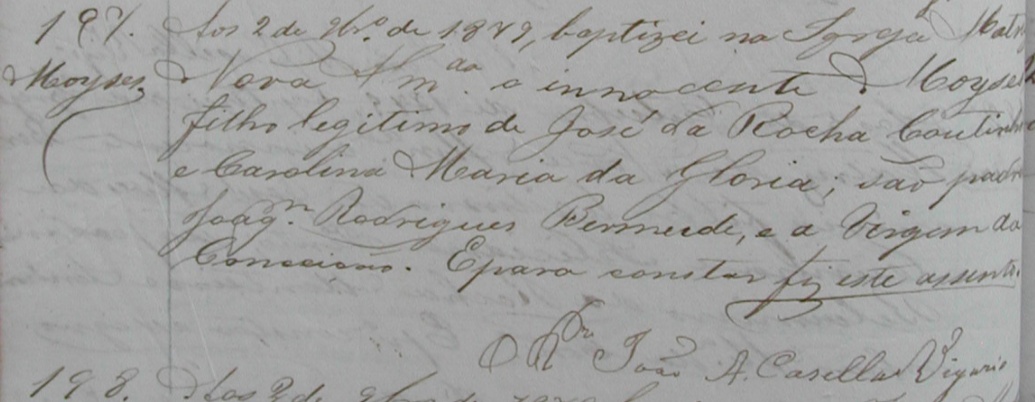 197. Aos 2 de 9br.o de 1879, baptizei na Igreja Matr
Moyses, Nova Alm.da o innocente Moyses
filho legitimo de José da Rocha Coutinho
e Carolina Maria da Gloria; são padr
Joaq.m Rodrigues Bermude, e a Virgem da
Conceicão. E para constar fiz este assento.
O P.e João A. Casella Vigario
198. Aos 2 de 9bro de 1879